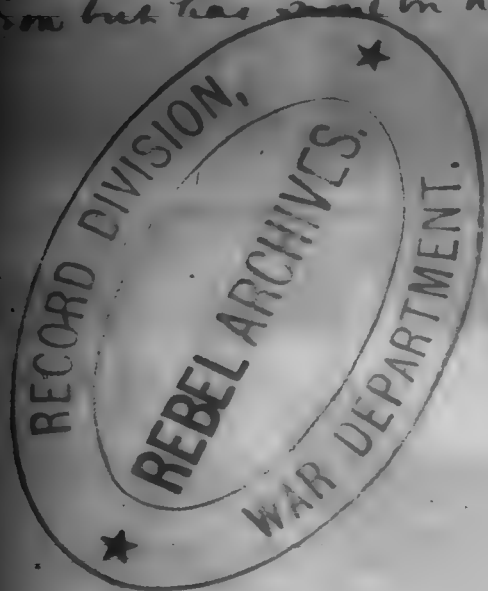 but has
RECORD DIVISION,
REBEL ARCHIVES.
WAR DEPARTMENT.